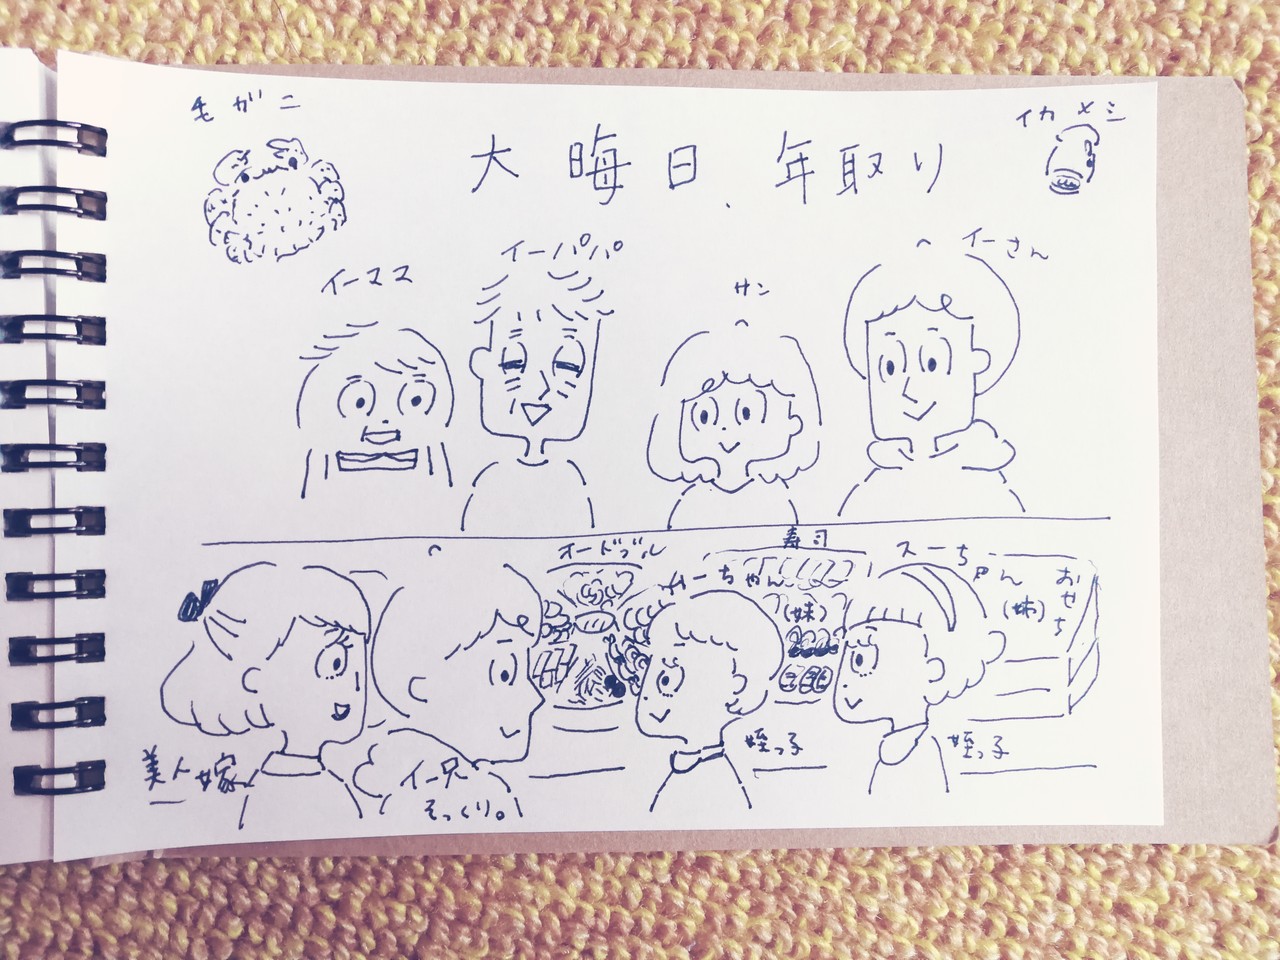 毛がニ
イカメシ
大晦日、年取り
イーママ
イーパパ
サン
イーさん
オードブル
寿司
スーちゃん
(妹)
おせち
ムーちゃん
(妹)
美人嫁
イー兄
そっくり。
姪っ子
姪っ子